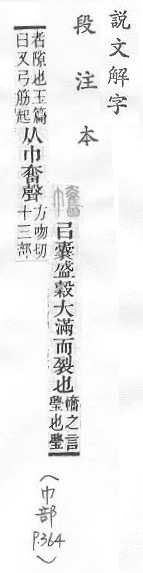 說文解字
段注本
㠯囊盛穀大滿而裂也
之言
璺也璺
者隙也玉篇
曰又弓筋起
从巾奮聲
方吻切
十三部
（巾部 P.364）